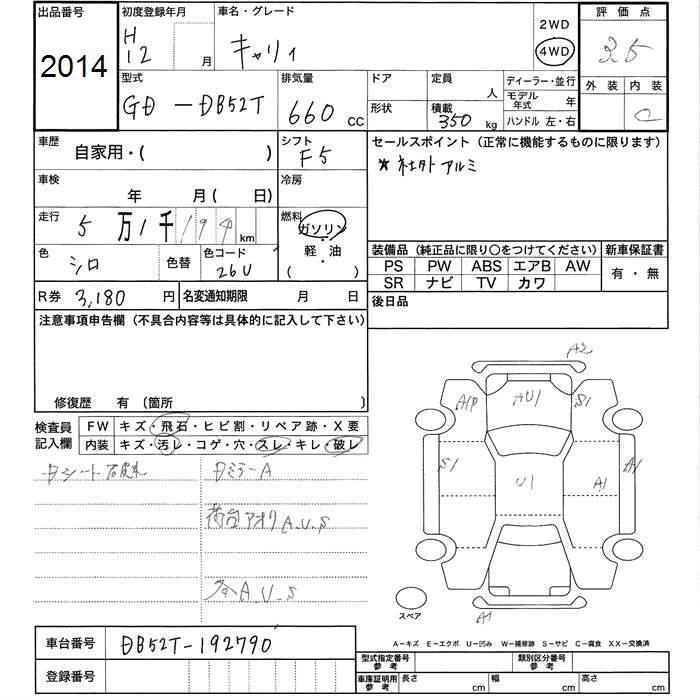 出品番号 初度登録年月 車名・グレード 2WD 評価点
2014 H12 月 キャリィ 4WD 3.5
型式 排気量 ドア 定員 人 ディーラー・並行 外装 内装
GD-DB52T 660 CC 形状 積載 350 kg モデル年式 年 C
ハンドル 左・右
車歴 自家用・( ) シフト F5 セールスポイント (正常に機能するものに限ります)
車検 年 月( 日) 冷房 アルミ
走行 5万1千194 km 燃料 ガソリン・軽・油 ( )
色 シロ 色替 色コード 26U
装備品 (純正品に限り○をつけてください) 新車保証書
PS PW ABS エアB AW 有・無
SR ナビ TV カワ
R券 3,180 円 名変通知期限 月 日 後日品
注意事項申告欄 (不具合内容等は具体的に記入して下さい)
修復歴 有 (箇所 )
検査員記入欄 FW キズ・飛石・ヒビ割・リペア跡・X要
内装 キズ・汚レ・コゲ・穴・スレ・キレ・破レ
シート
ミラーA
荷台アオリA.U.S
A.U.S
A2
A1P AU1 S1
S1 U1 A1 A1
A1
スペア
A-キズ E-エクボ U-凹み W-補修跡 S-サビ C-腐食 XX-交換済
車台番号 DB52T-192790
登録番号
型式指定番号参考 類別区分番号参考
車庫証明用参考 長さ cm 幅 cm 高さ cm